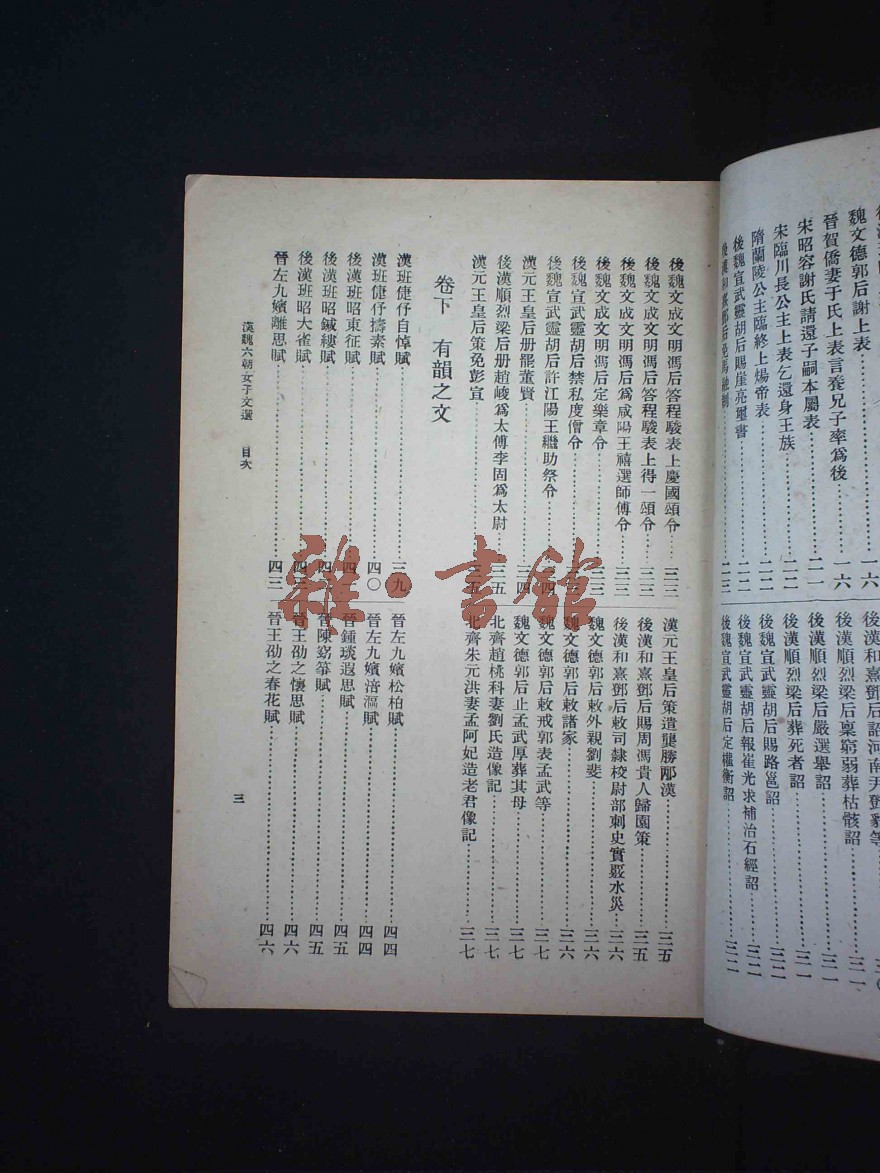 魏文德郭后謝上表
晉賀僑妻于氏上表言養兄子率爲後 一六
宋昭容謝氏請還子嗣本屬表 二一
宋臨川長公主上表乞還身王族 二二
隋蘭陵公主臨終上煬帝表 二二
後魏宣武靈胡后賜崖亮璽書 二三
後漢順烈梁后稟窮弱葬枯骸詔 三一
後漢順烈梁后嚴選舉詔 三一
後漢順烈梁后葬死者詔 三一
後魏宣武靈胡后賜路邕詔 三二
後魏宣武靈胡后報崔光求補治石經詔 三二
後魏宣武靈胡后定權衡詔 三二
後魏文成文明馮后答程駿表上慶國頌令 三三
後魏文成文明馮后答程駿表上得一頌令 三三
後魏文成文明馮后爲咸陽王禧選師傅令 三三
後魏文成文明馮后定樂章令 三三
後魏宣武靈胡后禁私度僧令
後魏宣武靈胡后許江陽王繼助祭令 四
漢元王皇后册罷董賢 四
後漢順烈梁后册趙峻爲太傅李固爲太尉 三五
漢元王皇后策免彭宣 三五
漢元王皇后策遣龔勝邴漢 三五
後漢和熹鄧后賜周馮貴人歸園策 三五
後漢和熹鄧后敕司隸校尉部刺史實覈水災 三六
魏文德郭后敕外親劉斐 三六
魏文德郭后敕諸家 三六
魏文德郭后敕戒郭表孟武等 三七
魏文德郭后止孟武厚葬其母 三七
北齊趙桃科妻劉氏造像記 三七
北齊朱元洪妻孟阿妃造老君像記 三七
卷下 有韻之文
漢班倢伃自悼賦 三九
漢班倢伃擣素賦 四〇
後漢班昭東征賦 四一
後漢班昭鍼縷賦
後漢班昭大雀賦 四三
晉左九嬪離思賦 四三
晉左九嬪松柏賦 四四
晉左九嬪涪漚賦 四四
晉鍾琰遐思賦 四五
晉陳窈箏賦 四五
晉王劭之懷思賦 四六
晉王劭之春花賦 四六
漢魏六朝女子文選 目次
三
雜·書館